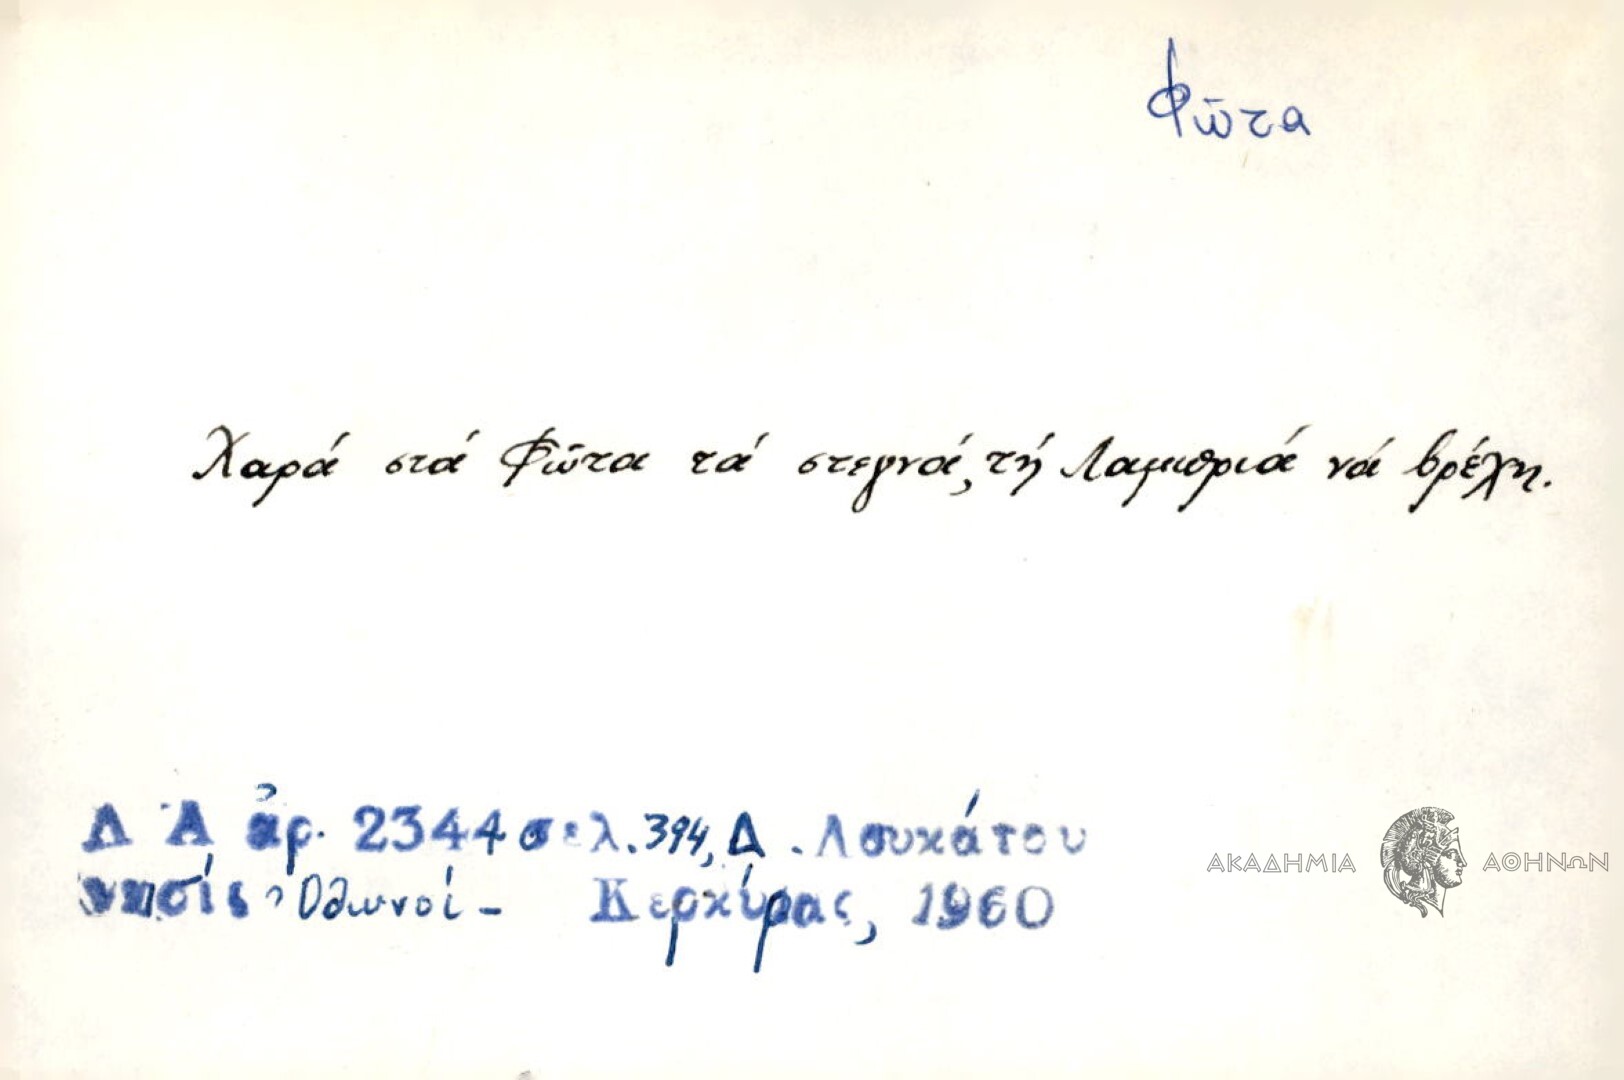 Φῶτα
Χαρά στά Φῶτα τά στεγνά, τή Λαμπριά νά βρέχη.
Λ Α ἀρ. 2344 σελ. 394, Δ. Λουκάτου
νησίς Ὀθωνοί - Κερκύρας, 1960
ΑΚΑΔΗΜΙΑ ΑΘΗΝΩΝ